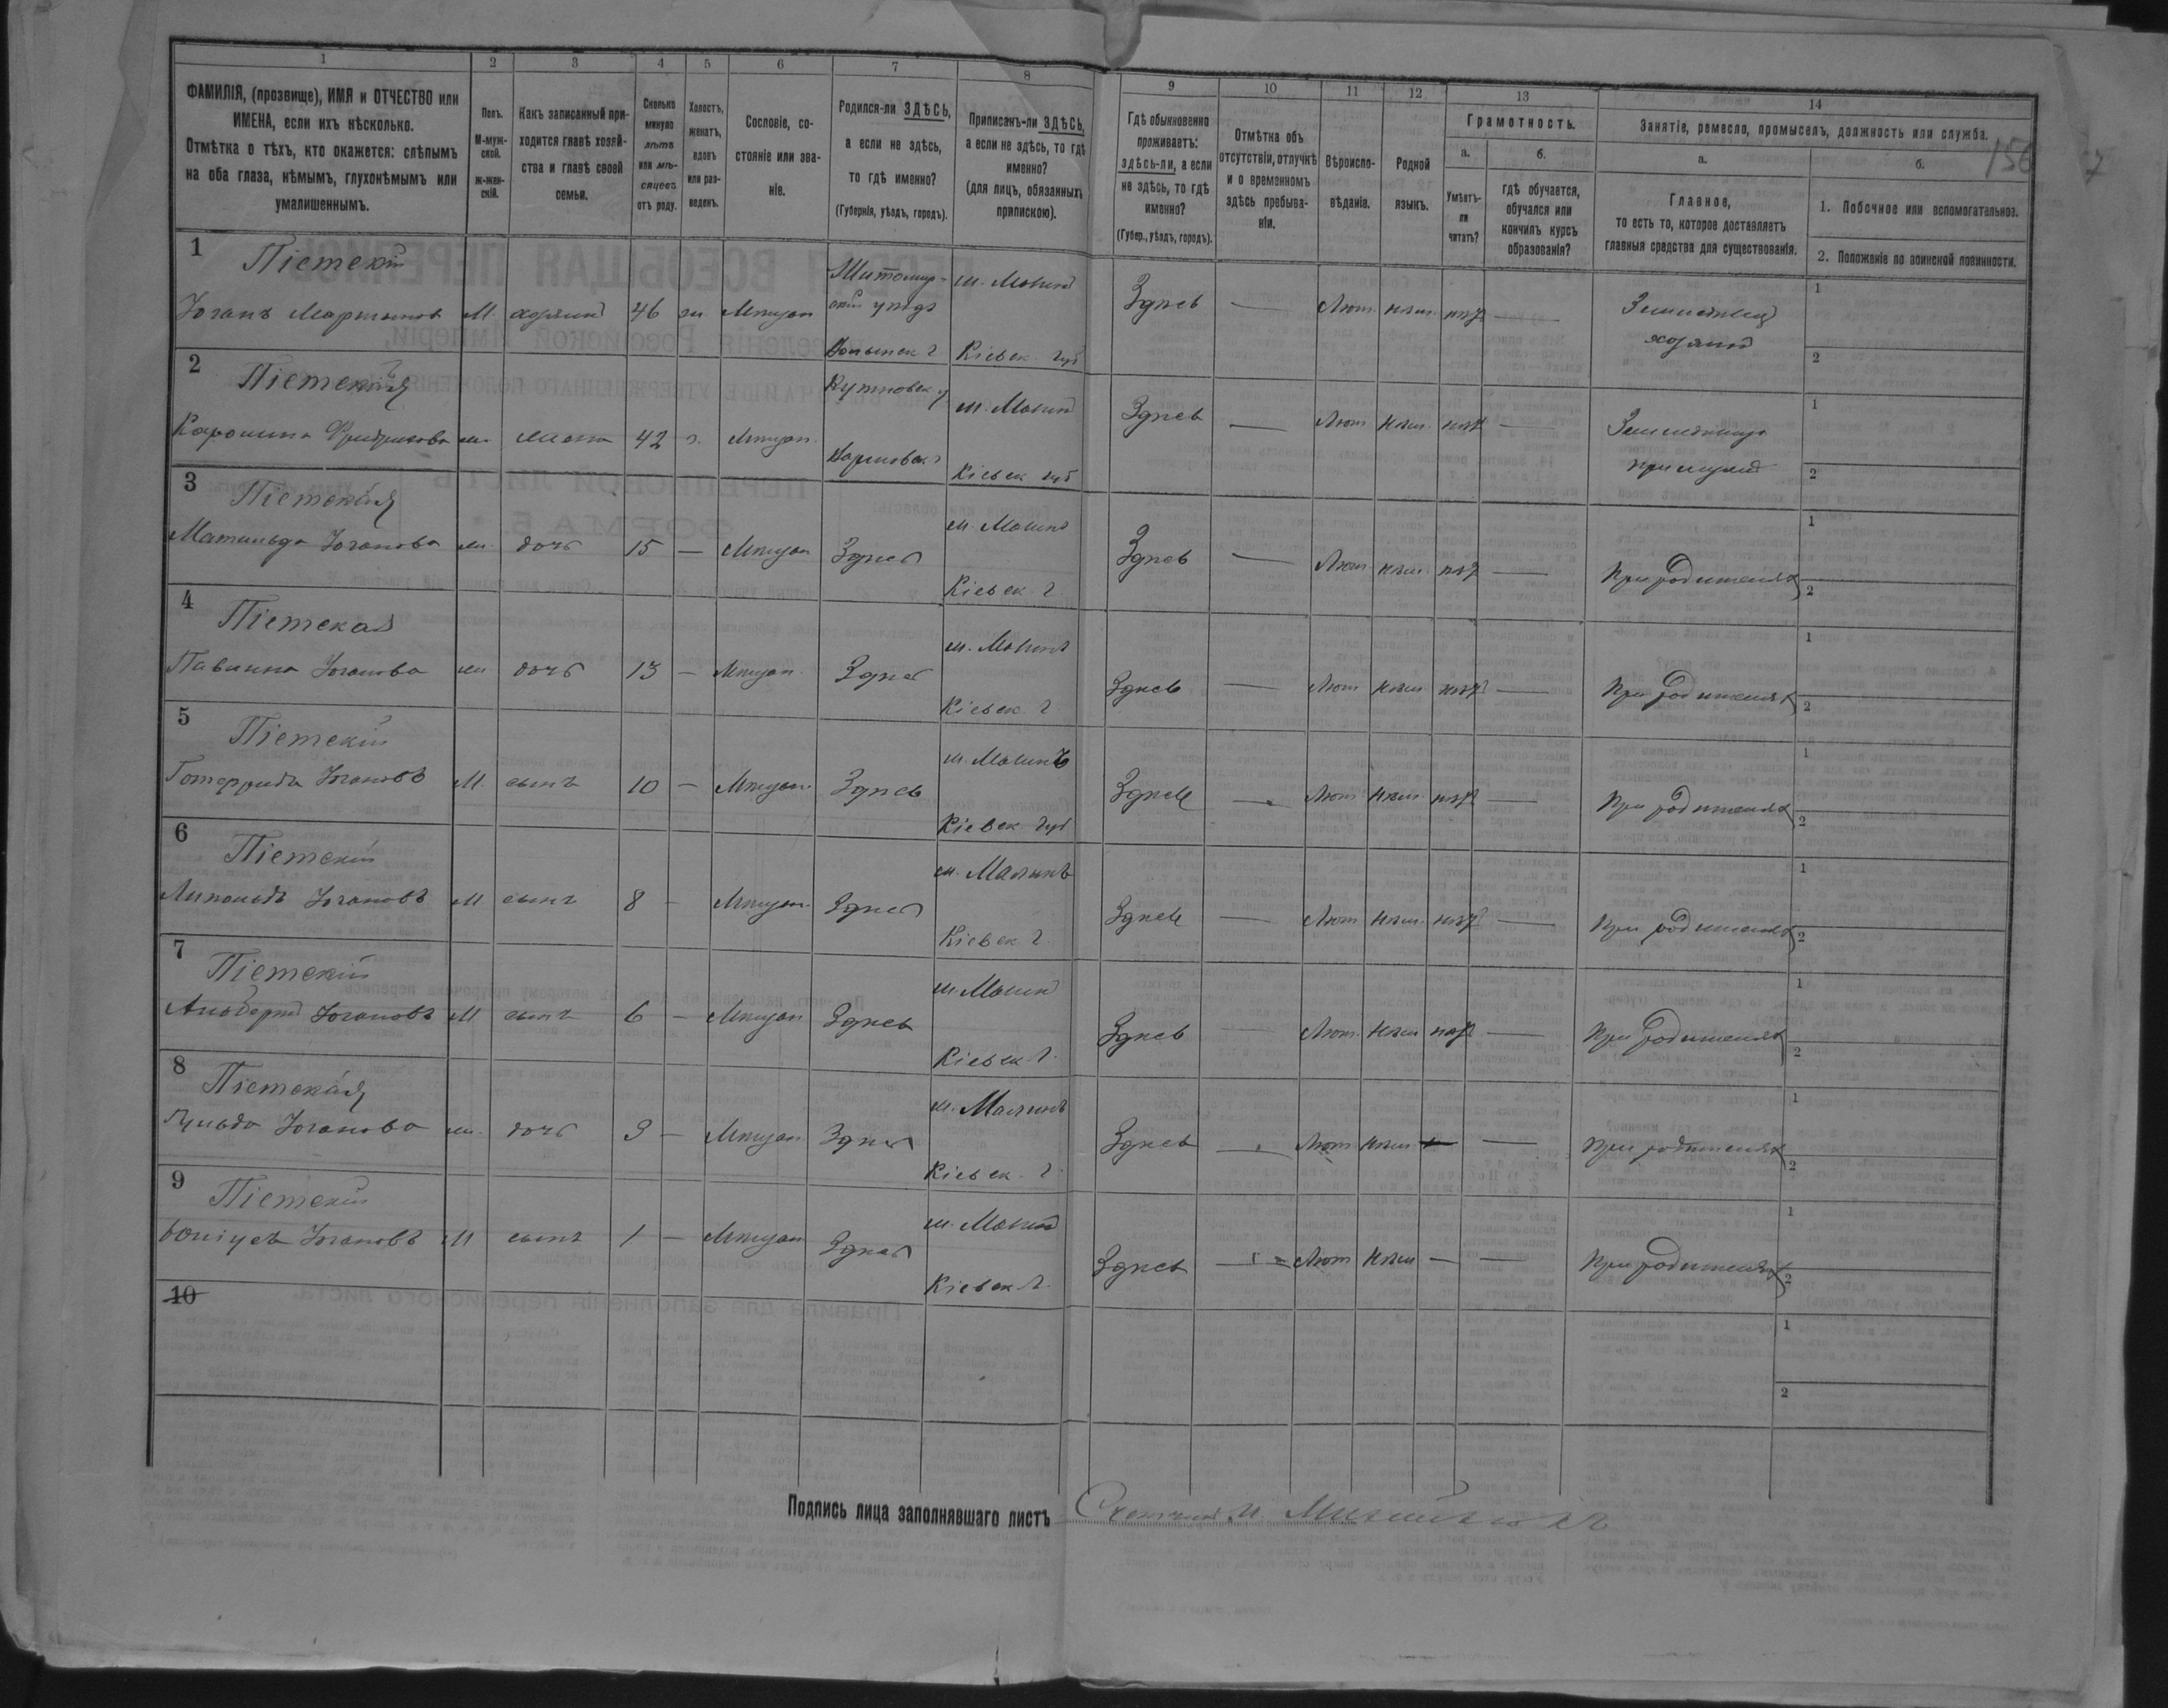 1
ФАМИЛІЯ, (прозвище), ИМЯ и ОТЧЕСТВО или
ИМЕНА, если ихъ нѣсколько.
Отмѣтка о тѣхъ, кто окажется: слѣпымъ
на оба глаза, нѣмымъ, глухонѣмымъ или
умалишеннымъ.
2
Полъ.
М-муж-
ской.
ж-жен-
скій.
3
Какъ записанный при-
ходится главѣ хозяй-
ства и главѣ своей
семьи.
4
Сколько
минуло
лѣтъ
или мѣ-
сяцевъ
отъ роду.
5
Холостъ,
женатъ,
вдовъ
или раз-
веденъ.
6
Сословіе, со-
стояніе или зва-
ніе.
7
Родился-ли ЗДѢСЬ,
а если не здѣсь,
то гдѣ именно?
(Губернія, уѣздъ, городъ).
8
Приписанъ-ли ЗДѢСЬ,
а если не здѣсь, то гдѣ
именно?
(для лицъ, обязанныхъ
припискою).
9
Гдѣ обыкновенно
проживаетъ:
здѣсь-ли, а если
не здѣсь, то гдѣ
именно?
(Губер., уѣздъ, городъ).
10
Отмѣтка объ
отсутствіи, отлучкѣ
и о временномъ
здѣсь пребыва-
ніи.
11
Вѣроиспо-
вѣданіе.
12
Родной
языкъ.
13
Грамотность.
а.
Умѣетъ-
ли
читать?
б.
гдѣ обучается,
обучался или
кончилъ курсъ
образованія?
14
Занятіе, ремесло, промыселъ, должность или служба.
а.
Главное,
то есть то, которое доставляетъ
главныя средства для существованія.
б.
1. Побочное или вспомогательное.
2. Положеніе по воинской повинности.
156
7
1
Пiетскiй
Іоганъ Мартиновъ М. хозяинъ 46 ж Мѣщан Житомир-
скій уѣздъ
Волынск г
м. Малинъ
Кіевск губ
Здѣсь — Лют нѣм. нѣт —
хозяинъ
1
2
2
Пiетская
Каролина Фридрихова ж жена 42 з. Мѣщан Кутновск у
Варшавск г
м. Малинъ
Кіевск губ
Здѣсь — Лют нѣм нѣт —
при мужѣ
1
2
3
Пiетская
Матильда Іоганова ж дочь 15 — Мѣщан Здѣсь
м. Малинъ
Кіевск г
Здѣсь — Лют нѣм нѣт —
При родителях
1
2
4
Пiетская
Павлина Іоганова ж дочь 13 — Мѣщан. Здѣсь
м. Малинъ
Кіевск г
Здѣсь — Лют нѣм нѣт —
При родителях
1
2
5
Пiетскiй
Готфридъ Іогановъ М. сынъ 10 — Мѣщан. Здѣсь
м. Малинъ
Кіевск губ
Здѣсь — Лют нѣм нѣт —
При родителях
1
2
6
Пiетскiй
Іогановъ М сынъ 8 — Мѣщан. Здѣсь
м. Малинъ
Кіевск г.
Здѣсь — Лют нѣм. нѣт —
При родителях
1
2
7
Пiетскiй
Альбертъ Іогановъ М сынъ 6 — Мѣщан Здѣсь
м. Малинъ
Кіевск г.
Здѣсь — Лют. нѣм нѣт —
При родителях
1
2
8
Пiетская
Іоганова ж. дочь 3 — Мѣщан Здѣсь
м. Малинъ
Кіевск г.
Здѣсь — Лют нѣм — —
При родителях
1
2
9
Пiетскiй
Юліусъ Іогановъ М сынъ 1 — Мѣщан Здѣсь
м. Малинъ
Кіевск г.
Здѣсь — Лют нѣм — —
При родителях
1
2
10
1
2
Подпись лица заполнявшаго листъ Счетчикъ И.